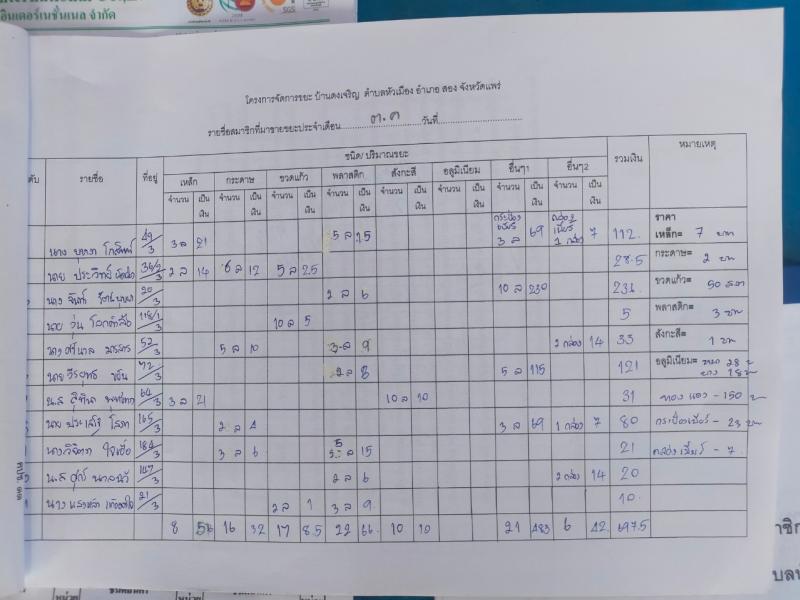 อินเตอร์เนชั่นเนล จำกัด
SGS
โครงการจัดการขยะ บ้านดงเจริญ ตำบลหัวเมือง อำเภอ สอง จังหวัดแพร่
รายชื่อสมาชิกที่มาขายขยะประจำเดือน ต.ค วันที่
ดับ รายชื่อ ที่อยู่ ชนิด/ ปริมาณขยะ รวมเงิน หมายเหตุ
เหล็ก กระดาษ ขวดแก้ว พลาสติก สังกะสี อลูมิเนียม อื่นๆ1 อื่นๆ2
จำนวน เป็นเงิน จำนวน เป็นเงิน จำนวน เป็นเงิน จำนวน เป็นเงิน จำนวน เป็นเงิน จำนวน เป็นเงิน จำนวน เป็นเงิน จำนวน เป็นเงิน
นาง 49/3 3 ล 21 5 ล 15 กระป๋องเบียร์ 3 ล 69 กล่องเบียร์ 1 กล่อง 7 112. ราคา เหล็ก= 7 บาท
นาย ประวิทย์ 2 ล 14 6 ล 12 5 ล 2.5 28.5 กระดาษ= 2 บาท
นาง จันทร์ 20/3 2 ล 6 10 ล 230 236 ขวดแก้ว= 50 สต
นาย วุ่น 118/1/3 10 ล 5 5 พลาสติก= 3 บาท
52/3 5 ล 10 3 ล 9 2 กล่อง 14 33 สังกะสี= 1 บาท
นาย วีรยุทธ 72/3 2 ล 6 5 ล 115 121 อลูมิเนียม= หนา 28 บ บาง 18 บ
น.ส 64/3 3 ล 21 10 ล 10 31 ทองแดง - 150 บ
นาย 165/3 2 ล 4 3 ล 69 1 กล่อง 7 80 กระป๋องเบียร์ - 23 บาท
นางวิจิตรา 184/3 3 ล 6 5 ล 15 21 กล่องเบียร์ - 7
น.ส 147/3 2 ล 6 2 กล่อง 14 20
นาง 21/3 2 ล 1 3 ล 9 10.
8 56 16 32 17 8.5 22 66 10 10 21 483 6 42 697.5